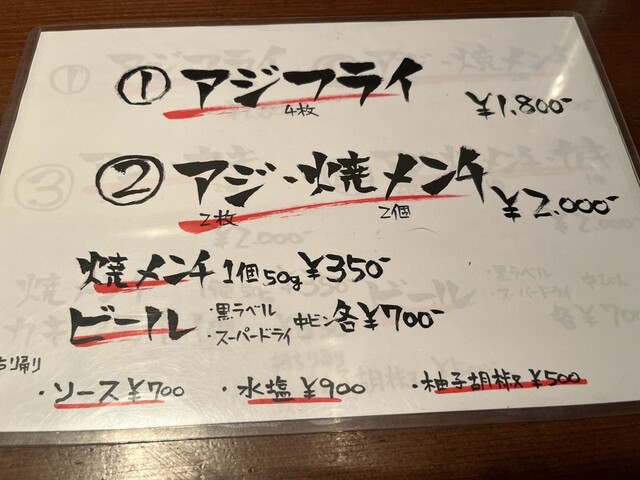 ① アジフライ ¥1,800-
4枚
② アジ・焼メンチ ¥2,000-
2枚 2個
焼メンチ 1個50g ¥350-
ビール ・黒ラベル ・スーパードライ 中ビン 各¥700-
・ソース¥700 ・水塩¥900 ・柚子胡椒¥500